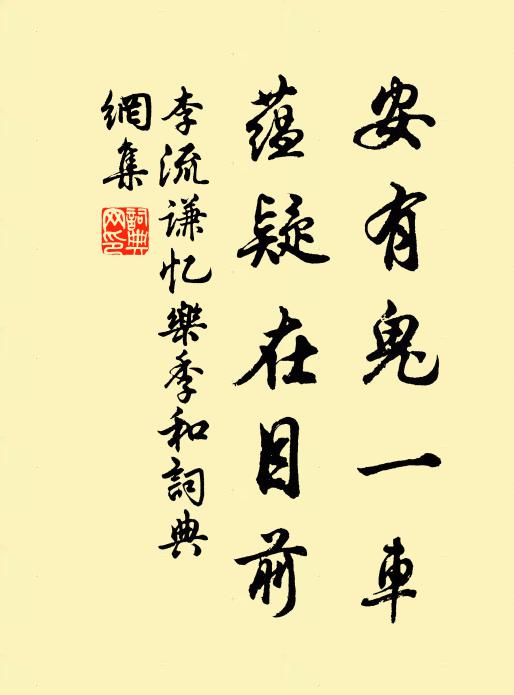 安有鬼一車
蕴疑在目前
李流谦忆樂季和詞典
網集
詞典網印